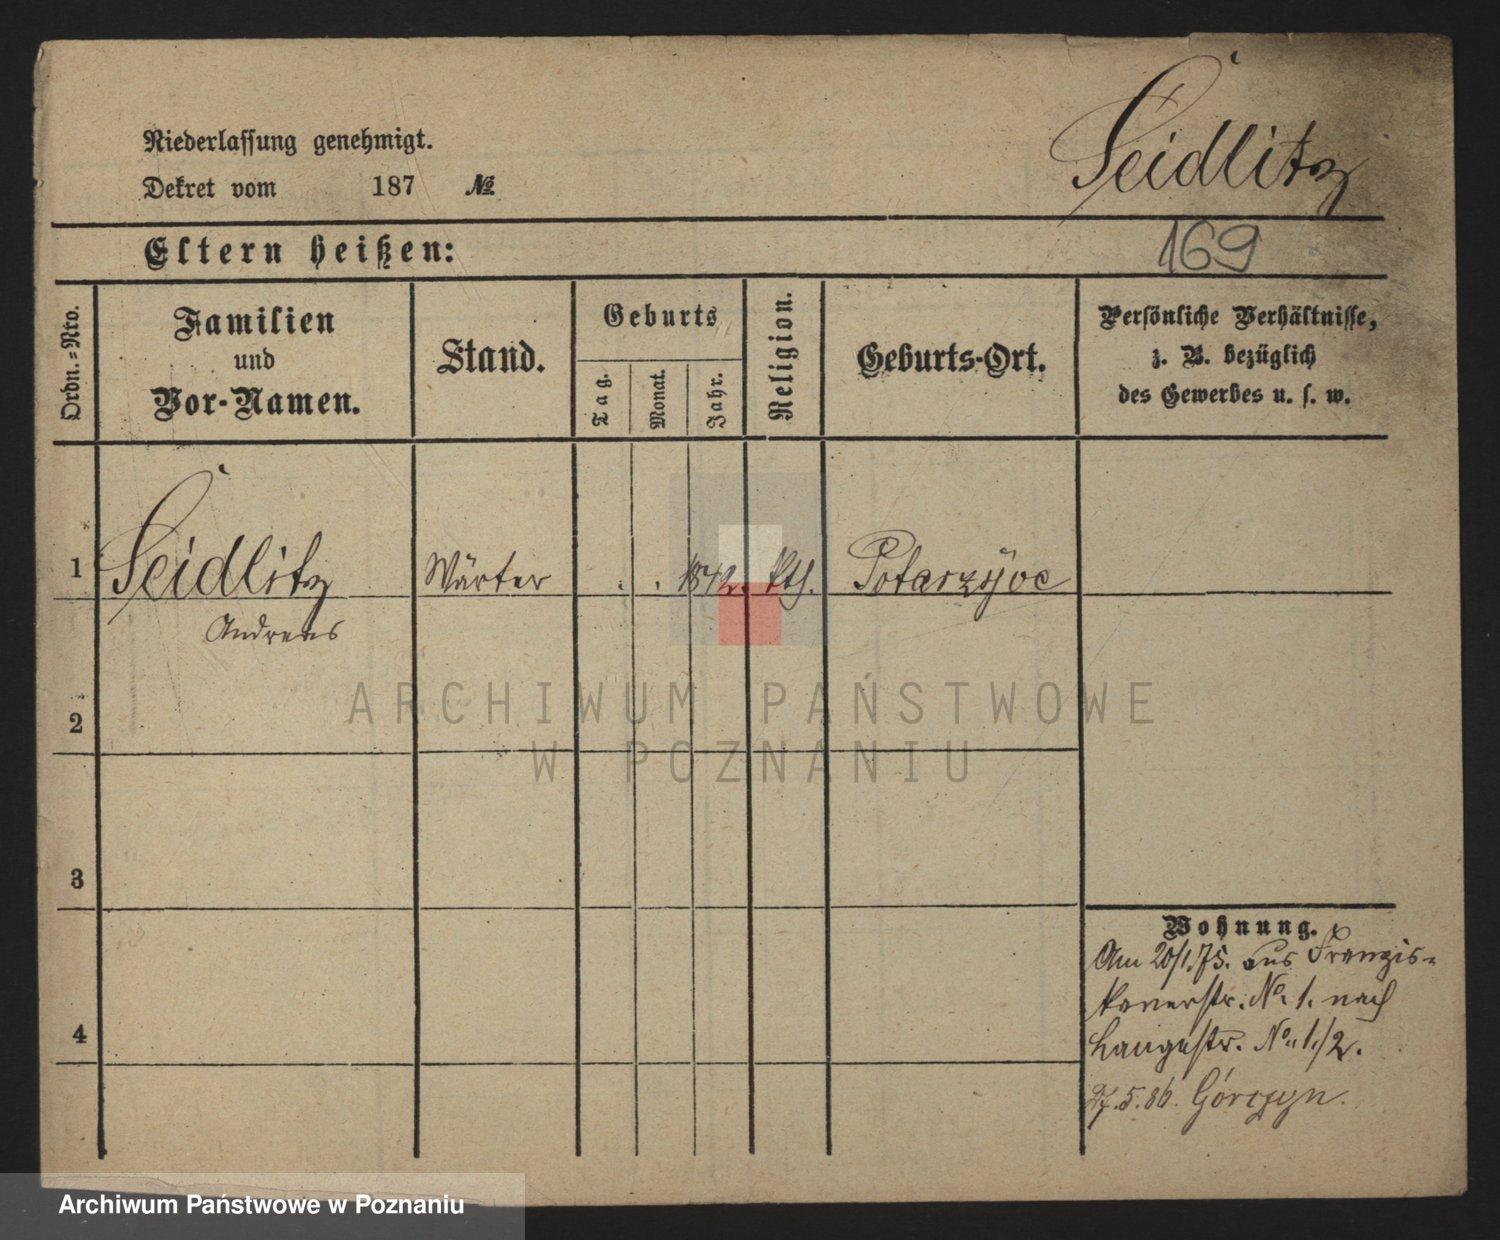 Seidlitz
Niederlassung genehmigt.
Dekret vom 187 №
Eltern heißen:
169
Ordn.=Nro.
Familien
und
Vor-Namen.
Stand.
Geburts
Tag.
Monat.
Jahr.
Religion.
Geburts-Ort.
Persönliche Verhältnisse,
z. B. bezüglich
des Gewerbes u. s. w.
1 Seidlitz Wärter . . 1842. kth. Potarzyce
Andreas
2
ARCHIWUM PAŃSTWOWE
W POZNANIU
3
4
Wohnung.
Am 20/1.75. aus Franzis=
kanerstr. No. 1. nach
Langestr. No. 1./2.
27.5.86 Górczyn.
Archiwum Państwowe w Poznaniu